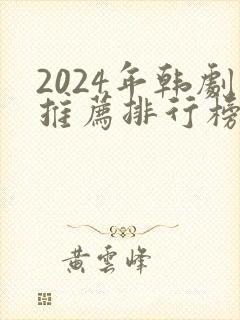 2024年韩劇
推薦排行榜
黄雲峰